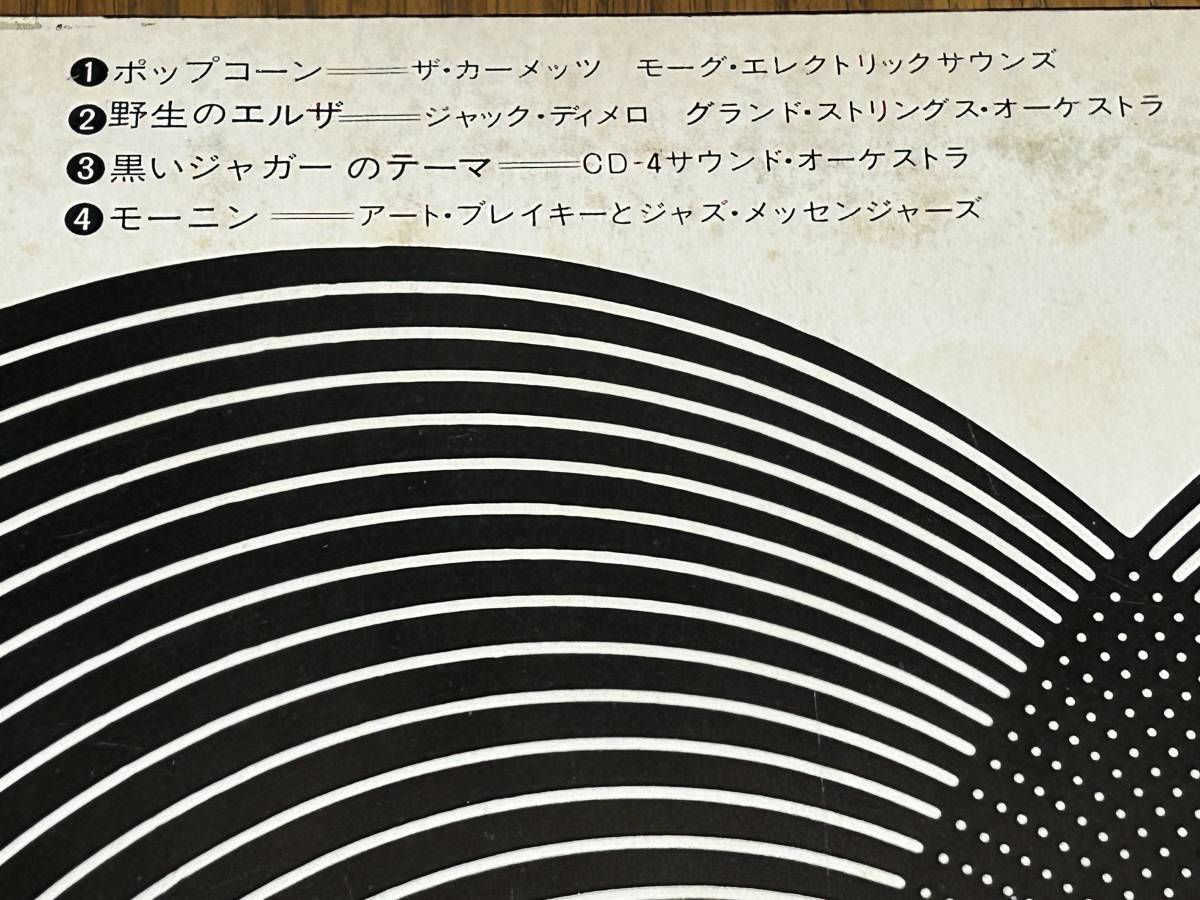 ❶ポップコーン══ザ・カーメッツ　モーグ・エレクトリックサウンズ
❷野生のエルザ══ジャック・ディメロ　グランド・ストリングス・オーケストラ
❸黒いジャガーのテーマ══CD-4サウンド・オーケストラ
❹モーニン══アート・ブレイキーとジャズ・メッセンジャーズ